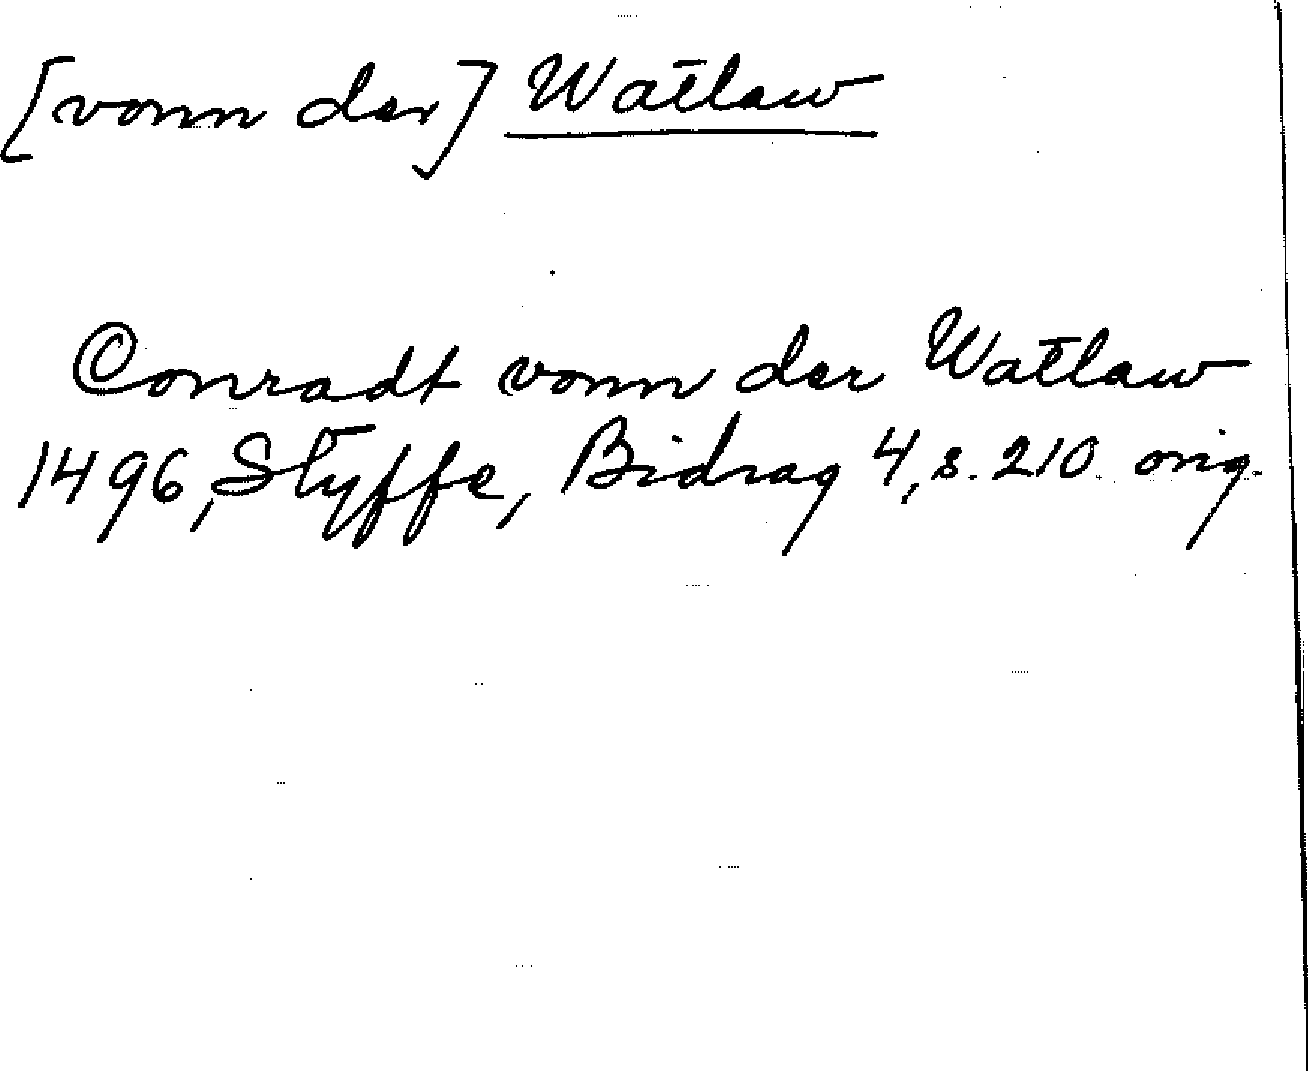 [vonn der] Watlaw
Conradt vonn der Watlaw
1496, Styffe, Bidrag 4, s. 210 orig.